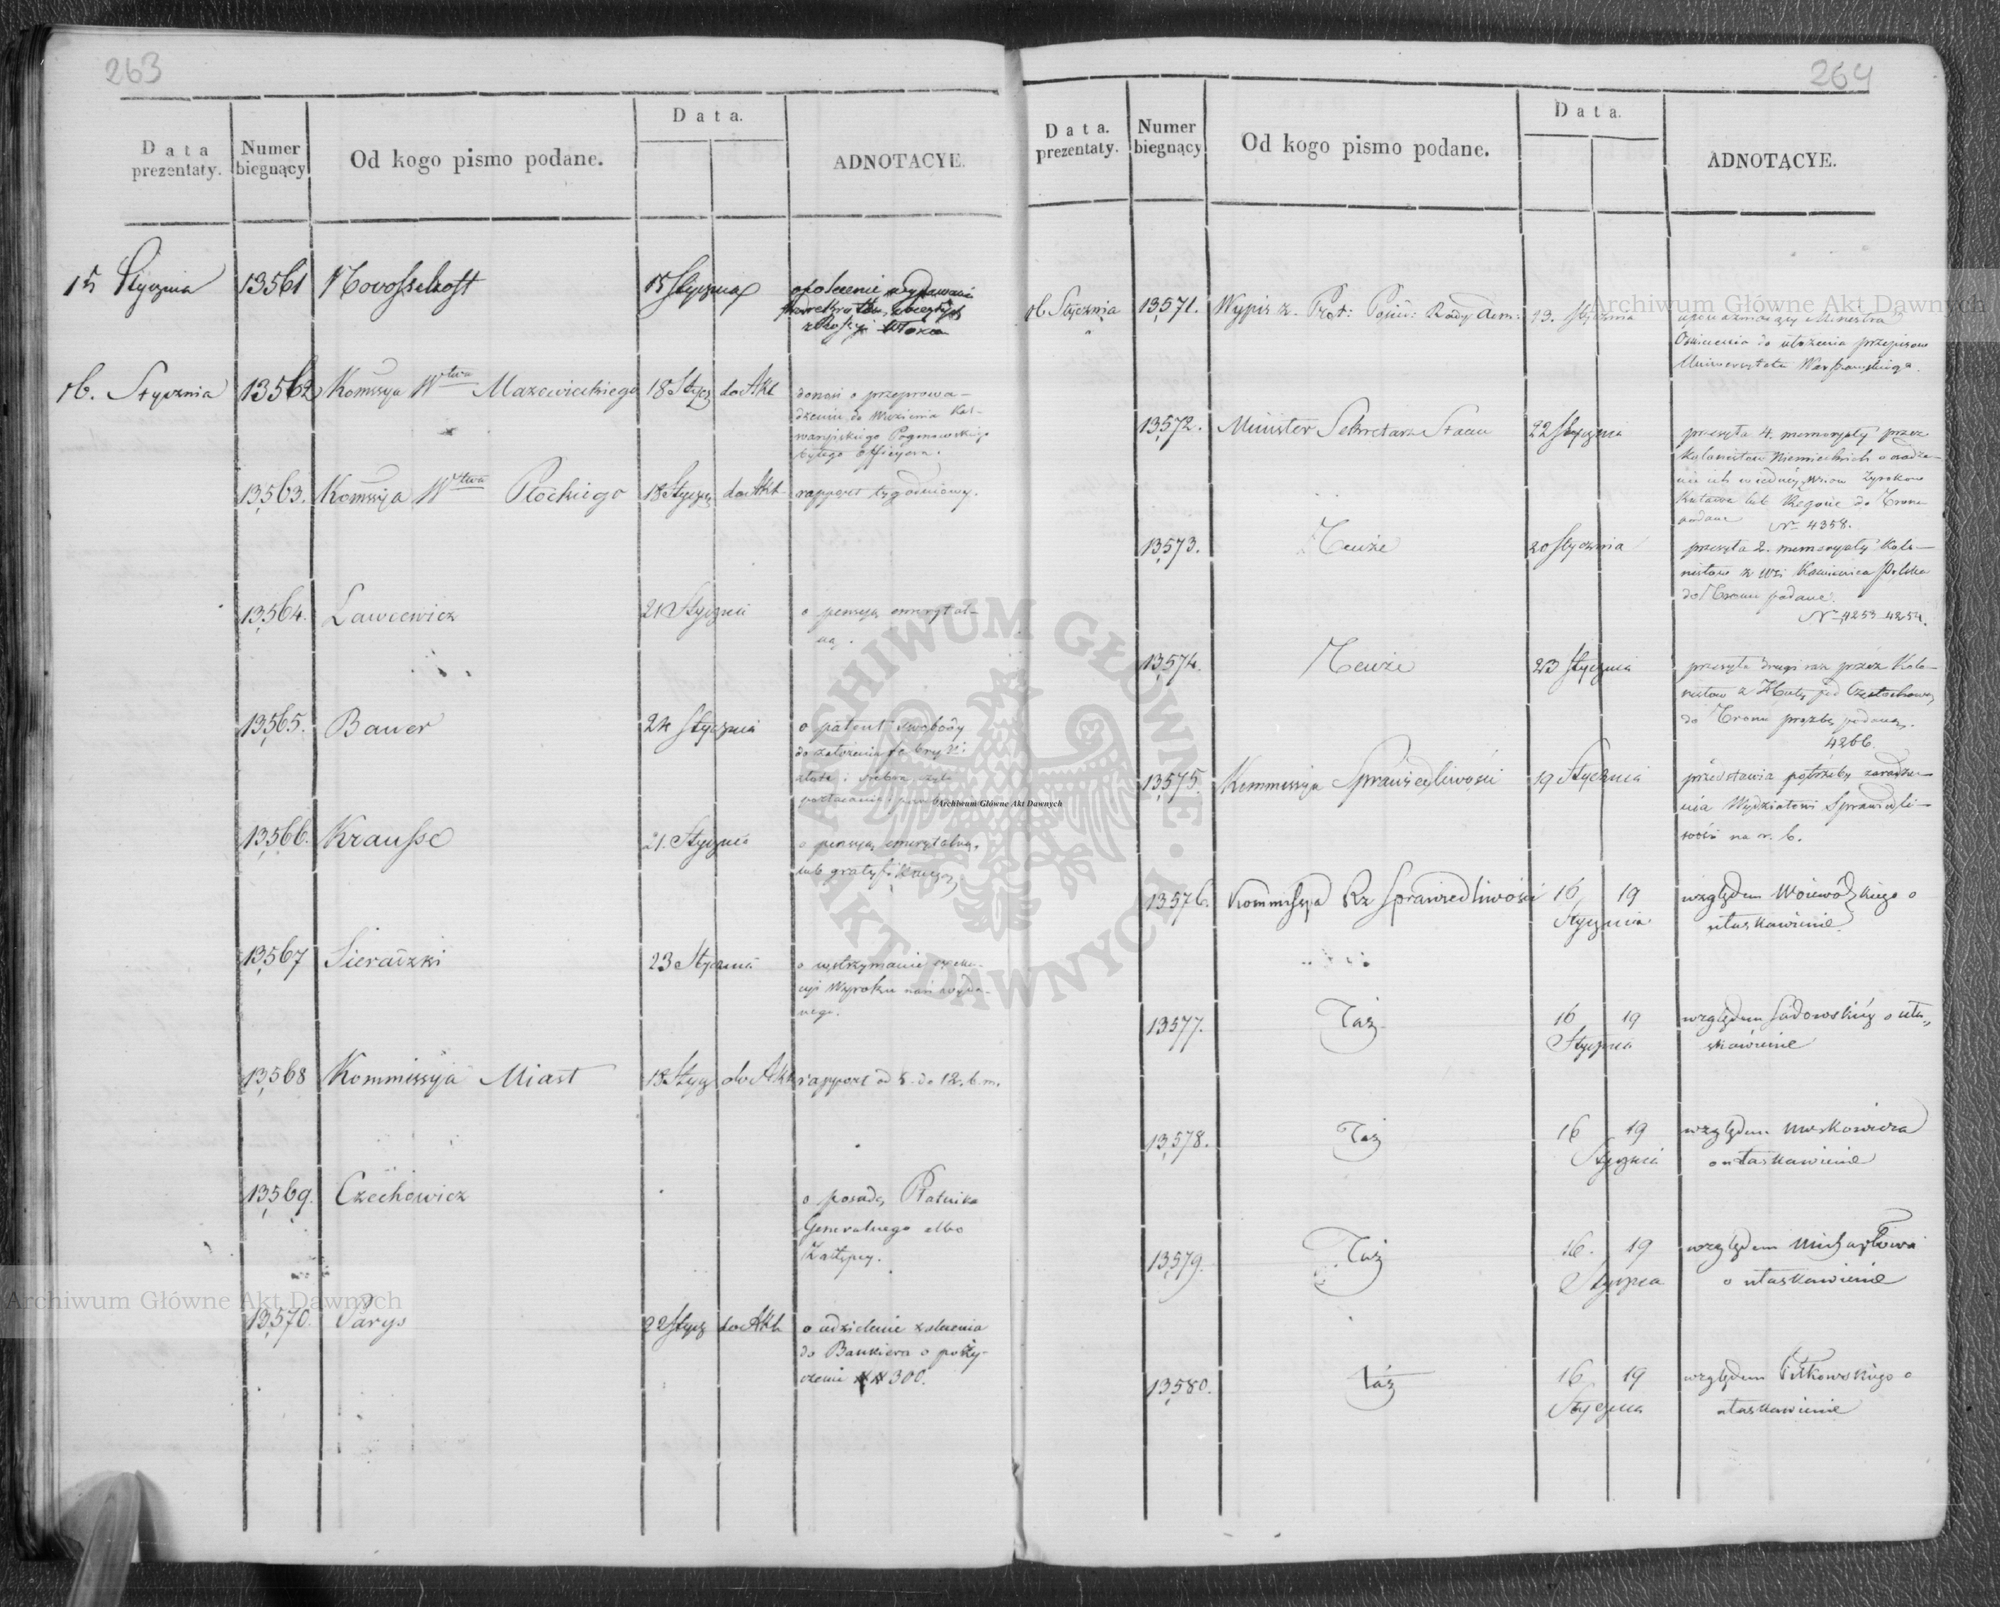 263
Data prezentaty.
Numer biegnący
Od kogo pismo podane.
Data.
ADNOTACYE.
15 Stycznia 13561 Novosselcoff 15 Stycznia
16. Stycznia 13562 Kommsya Wtwa Mazowieckiego 18 Stycz do Akt donosi o przeprowa-
dzeniu do Więzienia Kal-
waryjskiego Pogonowskiego
byłego officyera.
13563. Kommsya Wtwa Płockiego 18 Stycz do Akt rapport tygodniowy.
13564. Lawcewicz 21 Stycznia o pensyą emerytal-
ną.
13565. Bauer 24 Stycznia o patent swobody
do założenia fabryki
złota i srebra
13566. Krausse 21. Stycznia o pensyą emerytalną,
lub gratyfikacyą
13567 Sieradzki 23 Stycznia o wstrzymanie exeku-
cyi Wyroku nań wyda-
nego.
13568 Kommissyja Miast 18 Stycz do Akt rapport od 5. do 12. b. m.
13569. Czechowicz o posadę Płatnika
Generalnego albo
Zastępcy.
13570. Parys 22 Stycz do Akt o udzielenie zalecenia
do Bankiera o poży-
czenie ## 300.
264
Data. prezentaty.
Numer biegnący
Od kogo pismo podane.
Data.
ADNOTACYE.
16 Stycznia 13571. Wypis z. Prot: Posied: Rady Adm: 13. Stycznia upoważniający Ministra
Oświecenia do ułożenia przepisow
Uniwersytetu Warszawskiego.
13572. Minister Sekretarz Stanu 22 Stycznia przesyła 4. memoryały przez
Kolonistow Niemieckich o
do Tronu
podane No 4358.
13573. Tenże 20 Stycznia przesyła 2. memoryały Kolo-
nistow z wsi Kamienica Polska
do Tronu podane.
No 4253-4254.
13574. Tenże 23 Stycznia przesyła drugi raz przez Kolo-
nistow z Huty pod Częstochową
do Tronu prozbę podaną.
4266.
13575. Kommissyja Sprawiedliwości 19 Stycznia przedstawia potrzeby zaradze-
nia Wydziałowi Sprawiedli-
wości na r. b.
13576. Kommissya Rz Sprawiedliwości 16 19 względem Woiewódzkiego o
Stycznia ułaskawienie
13577. Taż 16 19 względem Sadowskiéy o uła-
Stycznia skawienie
13578. Taż 16 19 względem
Stycznia o ułaskawienie
13579. Taż 16. 19 względem
Stycznia o ułaskawienie
13580. Taż 16 19 względem Piłkowskiego o
Stycznia ułaskawienie
Archiwum Główne Akt Dawnych
Archiwum Główne Akt Dawnych
Archiwum Główne Akt Dawnych
ARCHIWUM GŁÓWNE AKT DAWNYCH